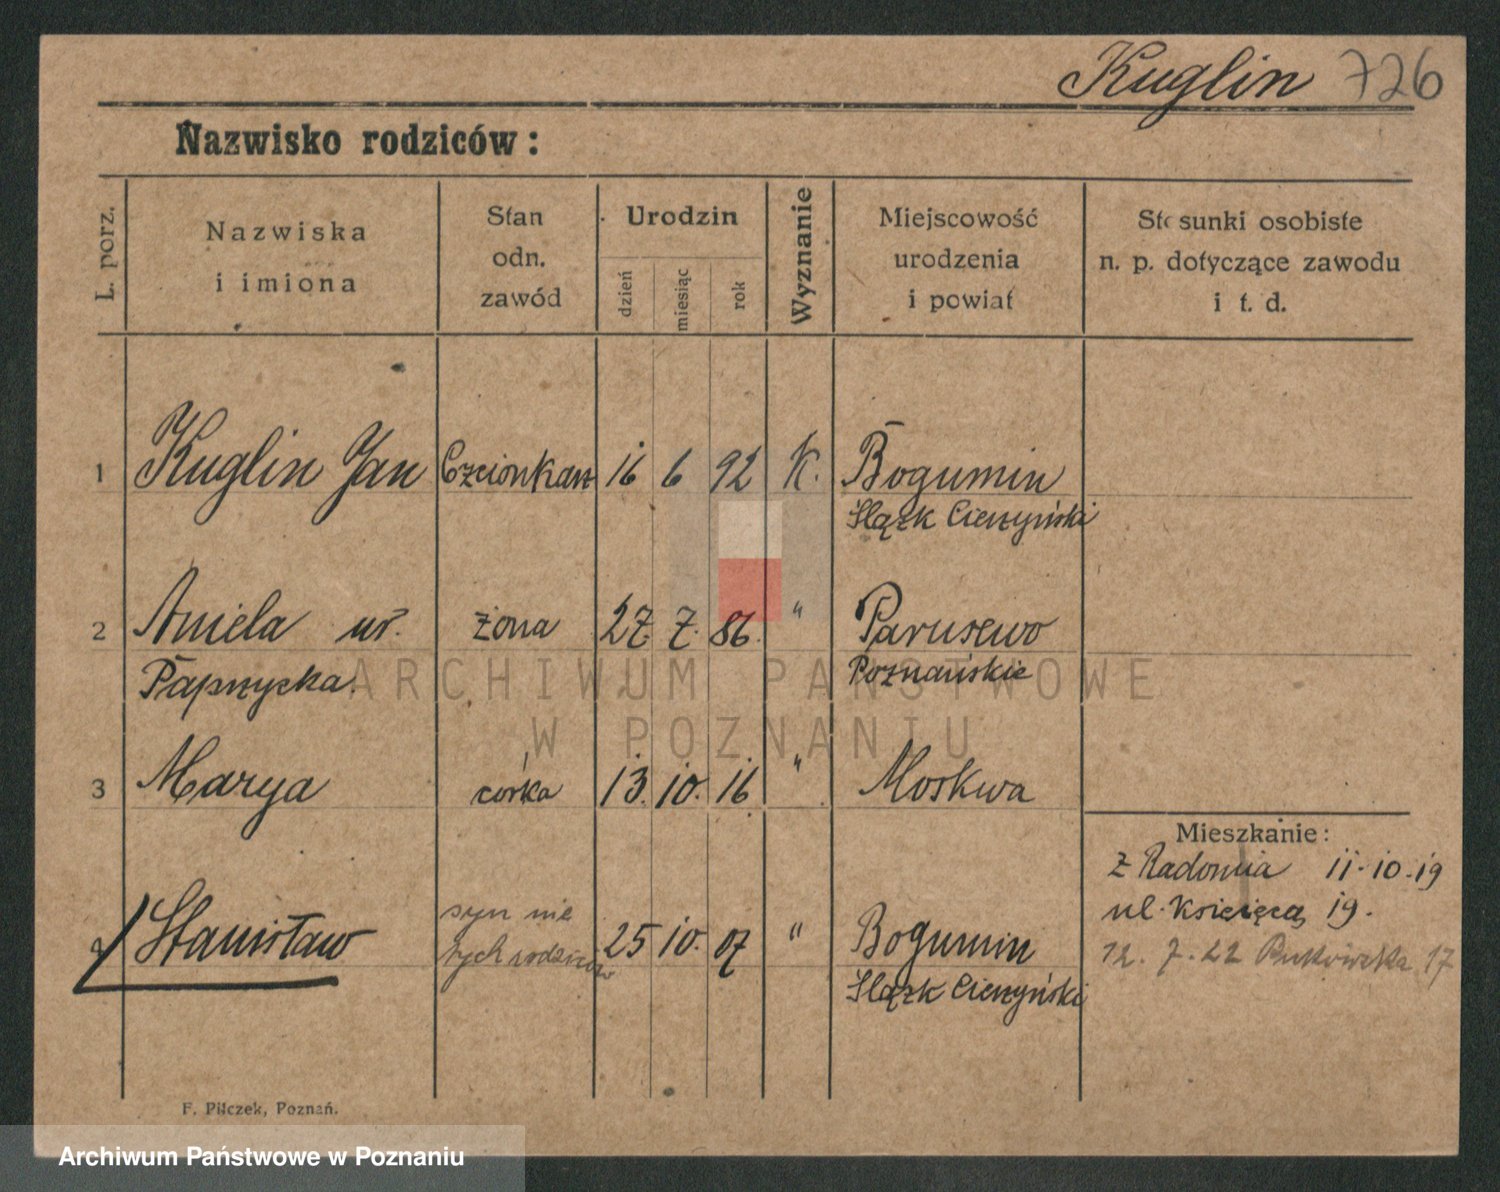 Kuglin 726
Nazwisko rodziców:
L. porz.
Nazwiska
i imiona
Stan
odn.
zawód
Urodzin
dzień
miesiąc
rok
Wyznanie
Miejscowość
urodzenia
i powiat
Stosunki osobiste
n. p. dotyczące zawodu
i t. d.
1 Kuglin Jan Czcionkarz 16 6 92 K. Bogumin
Ślązk Cieszyński
2 Aniela ur. żona 27. 7. 86. " Parusewo
Paprzycka. Poznańskie
3 Marya córka 13. 10. 16 " Moskwa
Mieszkanie:
z Radomia 11-10-19
ul. Księcia 19.
4 Stanisław syn nie
tych rodziców 25 10. 07 " Bogumin
Ślązk Cieszyński
12. 7. 22 17
F. Pilczek, Poznań.
ARCHIWUM PAŃSTWOWE
W POZNANIU
Archiwum Państwowe w Poznaniu